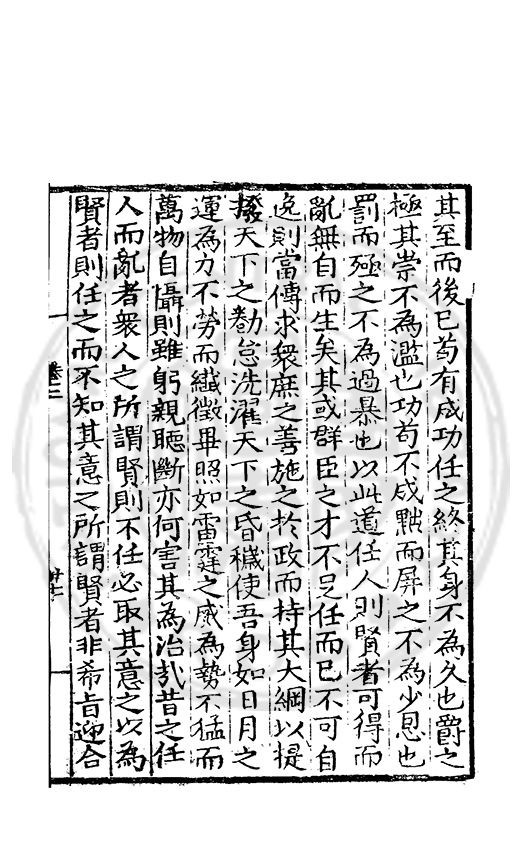 其至而後已苟有成功任之終其身不為久也爵之
極其崇不為濫也功苟不成黜而屏之不為少恩也
罰而殛之不為過暴也以此道任人則賢者可得而
亂無自而生矣其或群臣之才不足任而已不可自
逸則當傳求衆庶之善施之於政而持其大綱以提
撥天下之勌怠洗濯天下之昏穢使吾身如日月之
運為方不勞而纖徵畢照如雷霆之威為勢不猛而
萬物自懾則雖躬親聽斷亦何害其為治哉昔之任
人而亂者衆人之所謂賢則不任必取其意之以為
賢者則任之而不知其意之所謂賢者非希旨迎合
卷二